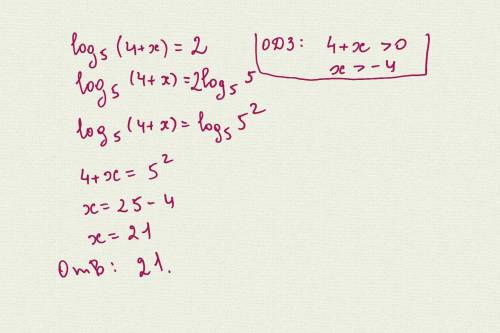 log₅ (4+x) = 2
ОДЗ: 4+x >0
x > -4
log₅ (4+x) = 2log₅ 5
log₅ (4+x) = log₅ 5²
4+x = 5²
x = 25 - 4
x = 21
Отв: 21.